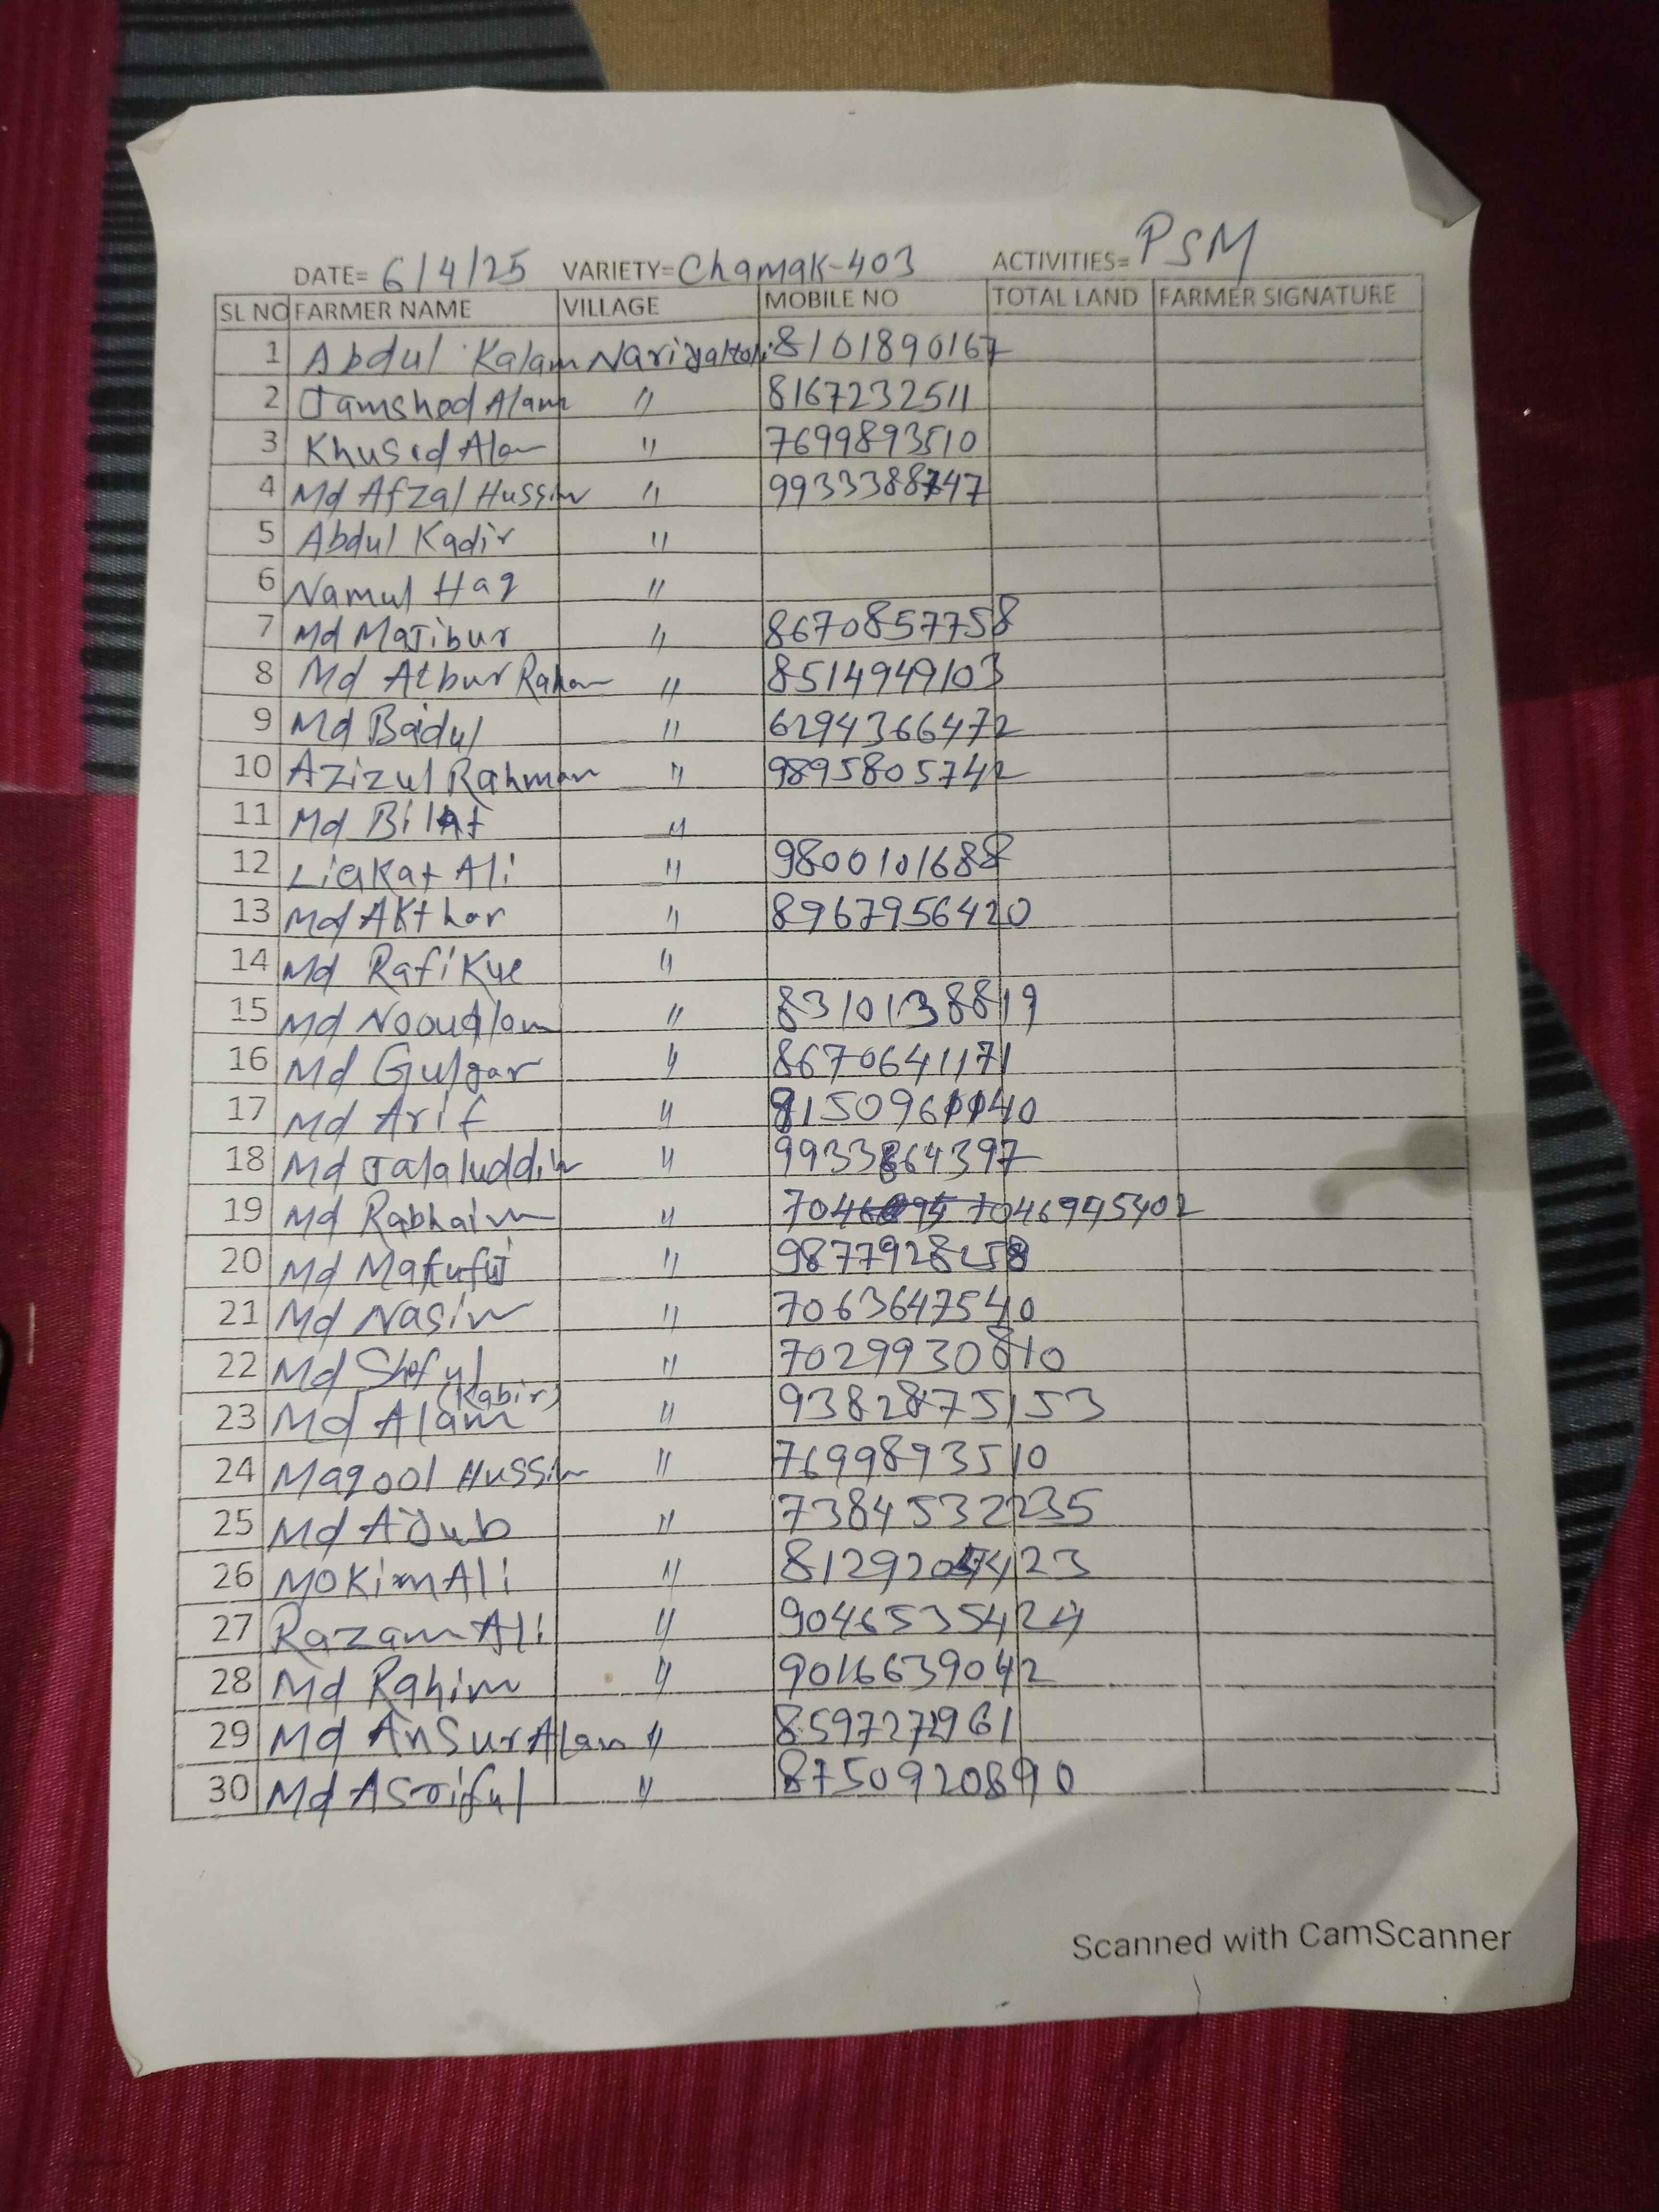 DATE= 6/4/25 VARIETY= Chamak-403 ACTIVITIES= PSM
SL NO FARMER NAME VILLAGE MOBILE NO TOTAL LAND FARMER SIGNATURE
1 Abdul Kalam 8101890167
2 Jamshed Alam " 8167232511
3 Khused Alam " 7699893510
4 Md Afzal Hussin " 9933388747
5 Abdul Kadir "
6 Namul Haq "
7 Md Majibur " 8670857758
8 Md Atbur Raham " 8514949103
9 Md Baidul " 6294366472
10 Azizul Rahman " 9895805742
11 Md "
12 Liakat Ali " 9800101688
13 Md Akthar " 8967956420
14 Md Rafikue "
15 Md Nooualam " 8310138819
16 Md Gulgar " 8670641171
17 Md Arif "
18 Md Jalaluddin " 9933864397
19 Md Rabhaim " 7046945402
20 Md "
21 Md Nasim " 7063647540
22 Md Shoful " 7029930810
23 Md Alam (Kabir) " 9382875153
24 Maqool Hussin " 7699893510
25 Md Ajub " 7384532235
26 Mokim Ali "
27 Razam Ali " 9046535424
28 Md Rahim " 9016639042
29 Md Ansur Alam "
30 Md Asriful " 8750920890
Scanned with CamScanner